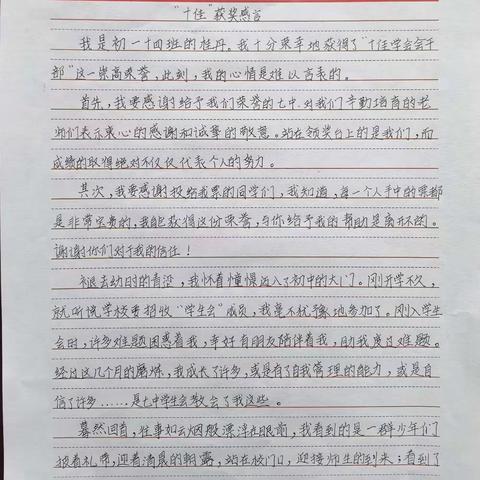 “十佳”获奖感言
我是初一十四班的桂丹。我十分荣幸地获得了“十佳学生会干
部”这一崇高荣誉，此刻，我的心情是难以言表的。
首先，我要感谢给予我们荣誉的七中，对我们辛勤培育的老
师们表示衷心的感谢和诚挚的敬意。站在领奖台上的是我们，而
成绩的取得绝对不仅仅代表个人的努力。
其次，我要感谢投给我票的同学们，我知道，每一个人手中的票都
是非常宝贵的，我能获得这份荣誉，与你给予我的帮助是离开不的。
谢谢你们对于我的信任！
褪去幼时的青涩，我怀着憧憬迈入了初中的大门。刚开学不久，
就听说学校要招收“学生会”成员，我毫不犹豫地参加了。刚入学生
会时，许多难题困惑着我，幸好有朋友陪伴着我，助我度过难题。
经过这几个月的磨炼，我成长了许多，或是有了自我管理的能力，或是自
信了许多……是七中学生会教会了我这些。
蓦然回首，往事如云烟般漂浮在眼前，我看到的是一群少年们
披着礼带，迎着清晨的朝露，站在校门口，迎接师生的到来；看到了